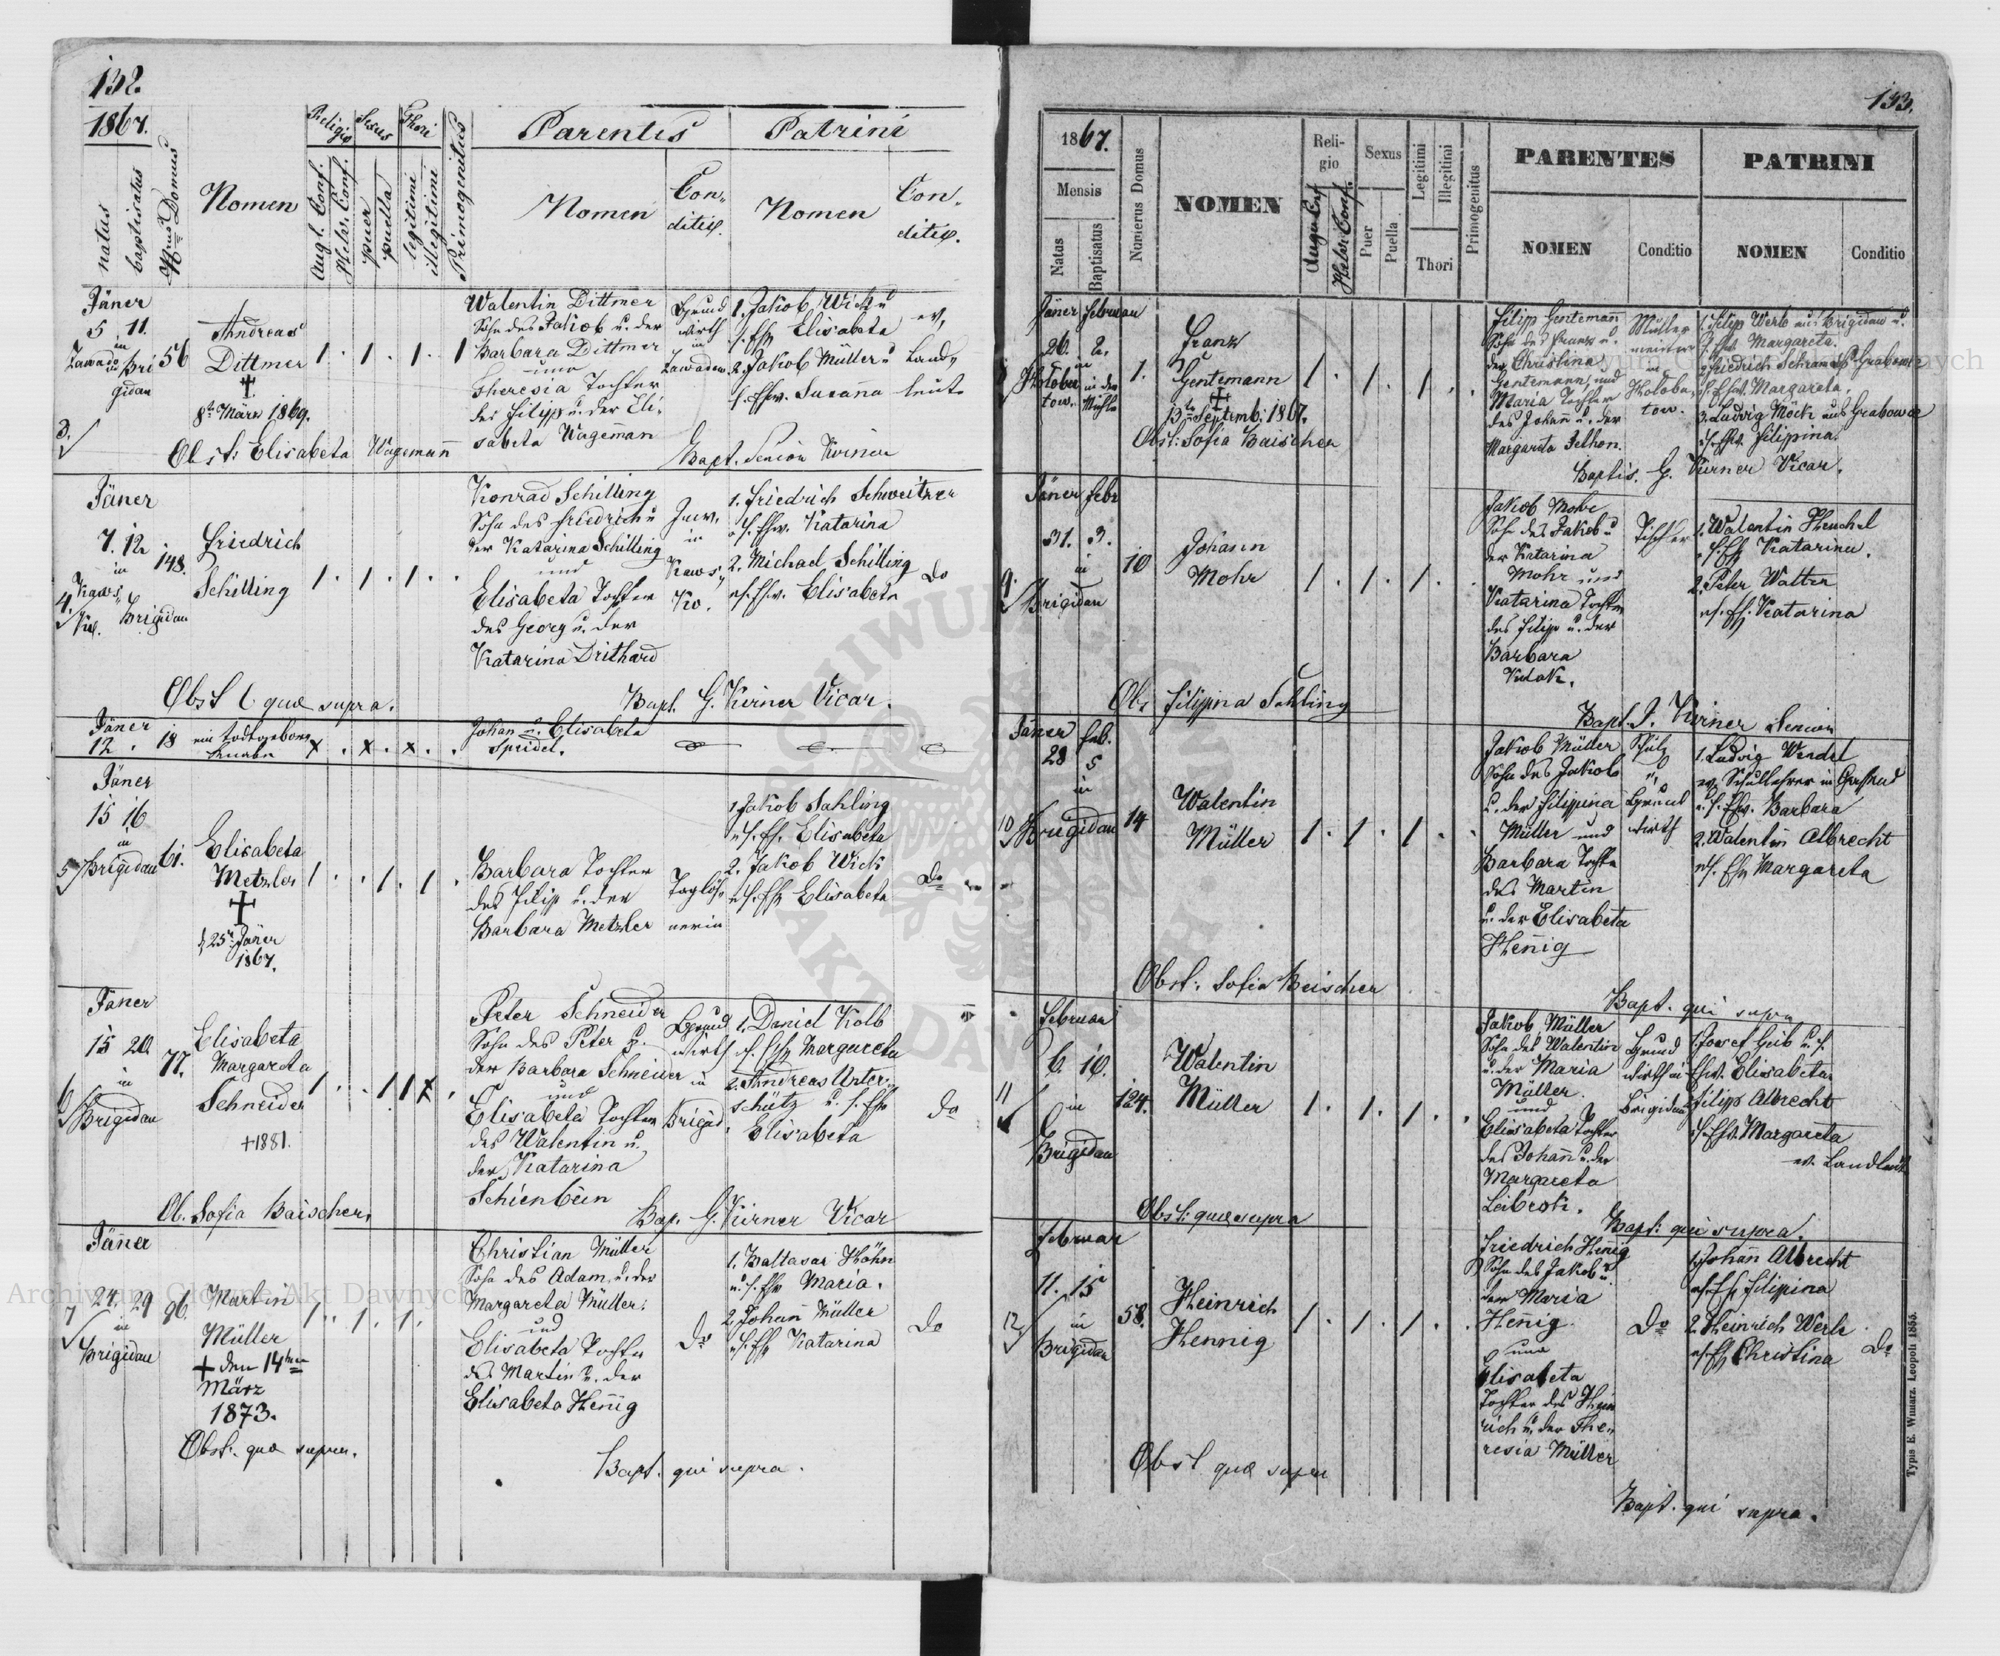 132.
1867.
Religio
Sexus
Thori
Parentes
Patrini
natus
baptisatus
Nrus Domus
Nomen
Augl. Conf.
Helv. Conf.
puer
puella
legitimi
illegitimi
Primogenitus
Nomen
Con-
ditio.
Nomen
Con-
ditio.
Jäner
5 11.
in
56
Andreas
Dittmer
8t. März 1869.
1 . 1 . 1 . 1
Walentin Dittmer
Sohn des Jakob u. der
Barbara Dittmer
und
Theresia Tochter
des Filipp u. der Eli-
sabeta Wageman̄
Grund
wirth
in
Zawadow
1. Jakob Wick u
s. Ehf. Elisabeta
2. Jakob Müller u
s. Ehw. Susan̄a
ev.
Land-
leute
3.
Obst: Elisabeta Wageman̄
Bapt. Senior Kirner
Jäner
7. 12.
in
148.
Brigidau
4.
Friedrich
Schilling
1 . 1 . 1 . .
Konrad Schilling
Sohn des Friedrich u
der Katarina Schilling
und
Elisabeta Tochter
des Georg u. der
Katarina Drithard
in
1. Friedrich Schweitzer
s. Ehw. Katarina
2. Michael Schilling
u. s. Ehw. Elisabeta
Do
Obst quæ supra.
Bapt. G. Kirner Vicar.
Jäner
12 . 18
ein todtgeborner
Knabe
x . x . x . .
Johan u. Elisabeta
Speidel.
Jäner
15 16
in
Brigidau
61.
5
Elisabeta
Metzler
25t Jäner
1867.
1 . . 1 . 1 .
Barbara Tochter
des Filip u. der
Barbara Metzler
Taglöh-
nerin
1. Jakob Sahling
u. s. Ef. Elisabeta
2. Jakob Wick
u. s. Ehf. Elisabeta
Do
Jäner
15 20.
in
Brigidau
77.
6
Elisabeta
Margareta
Schneider
+1881.
1 . . 1 1 x .
Peter Schneider
Sohn des Peter u.
der Barbara Schneider
und
Elisabeta Tochter
des Walentin u.
der Katarina
Schienbein
Grund
wirth
in
Brigid.
1. Daniel Kolb
u. s. Ehf. Margareta
2. Andreas Unter-
schütz u. s. Ehf
Elisabeta
Do
Ob. Sofia Baischer.
Bap. G. Kirner Vicar
Jän̄er
24. 29
in
Brigidau
96.
7
Martin
Müller
+ den 14ten
März
1873.
1 . 1 . 1 .
Christian Müller
Sohn des Adam u. der
Margareta Müller.
und
Elisabeta Tochter
des Martin u. der
Elisabeta Hen̄ig
Do
1. Baltasar Höhn
u. s. Ehf. Maria.
2. Johan̄ Müller
u. s. Ehf. Katarina
Do
Obst. quæ supra.
Bapt. qui supra.
133.
1867.
Mensis
Natus
Baptisatus
Numerus Domus
NOMEN
Reli-
gio
August. Conf
Helv. Conf.
Sexus
Puer
Puella
Legitimi
Illegitimi
Thori
Primogenitus
PARENTES
NOMEN
Conditio
PATRINI
NOMEN
Conditio
Jäner Februar
26. 2.
in
in der
Mühle
1.
Frank
Gentemann
13te Septemb. 1867.
1 . 1 . 1 . .
Filip Gentemann
Sohn des Frank u.
der Christina
Gentemann, und
Maria Tochter
des Johan̄ u. der
Margareta Jethon.
Müller
meister
in
Holobu-
tow.
1. Filip Werb aus Brigidau u.
s. Ehf. Margareta.
s. Ehw. Margareta.
3. Ludwig Möck aus Grabowce
u. s. Ehw. Filipina.
Obst: Sofia Baischer
Baptis. G. Kirner Vicar.
Jäner Febr
31. 3.
in
Brigidau
10
9.
Johann
Mohr
1 . 1 . 1 .
Jakob Mohr
Sohn des Jakob u
der Katarina
Mohr und
Katarina Tochter
des Filip u. der
Barbara
Kulak.
Tischler
1. Walentin Heuchel
u. s. Ehf Katarina.
2. Peter Walter
u. s. Ef. Katarina
Obs Filippina Sahling
Bapt. J. Kirner Senior
Jäner Feb.
28 5
in
Brigidau
14
10
Walentin
Müller
1 . 1 . 1 . .
Jakob Müller
Sohn des Jakob
u. der Filippina
Müller und
Barbara Tochter
des Martin
u. der Elisabeta
Hen̄ig
Grund
wirth
1. Ludwig Wendel
ev. Schullehrer in Gassend
u. s. Ehw. Barbara
2. Walentin Albrecht
u. s. Ehf Margareta
Obst. Sofia Beischer
Bapt. qui supra
Februar
6. 10.
in
Brigidau
124.
11
Walentin
Müller
1 . 1 . 1 . .
Jakob Müller
Sohn des Walentin
u. der Maria
Müller
und
Elisabeta Tochter
des Johan̄ u. der
Margareta
Leibrok.
Grund
wirth in
Brigidau
1. Josef Geib u. s.
Ehw. Elisabeta
Filipp Albrecht
u. s. Ehw. Margareta
ev. Landleute
Obst: quæ supra
Bapt: qui supra.
Februar
11. 15
in
Brigidau
58.
12
Heinrich
Hennig
1 . 1 . 1 . .
Friedrich Hen̄ig
Sohn des Jakob u.
der Maria
Henig.
und
Elisabeta
Tochter des Hein
rich u. der The-
resia Müller
Do
1. Johan̄ Albrecht
u. s. Ef Filipina
2. Heinrich Werle
u. s. Ehf Christina
Do
Obst quæ supra
Bapt. qui supra.
Typis E. Winiarz. Leopoli 1865.
ARCHIWUM GŁÓWNE AKT DAWNYCH
Archiwum Główne Akt Dawnych
Archiwum Główne Akt Dawnych